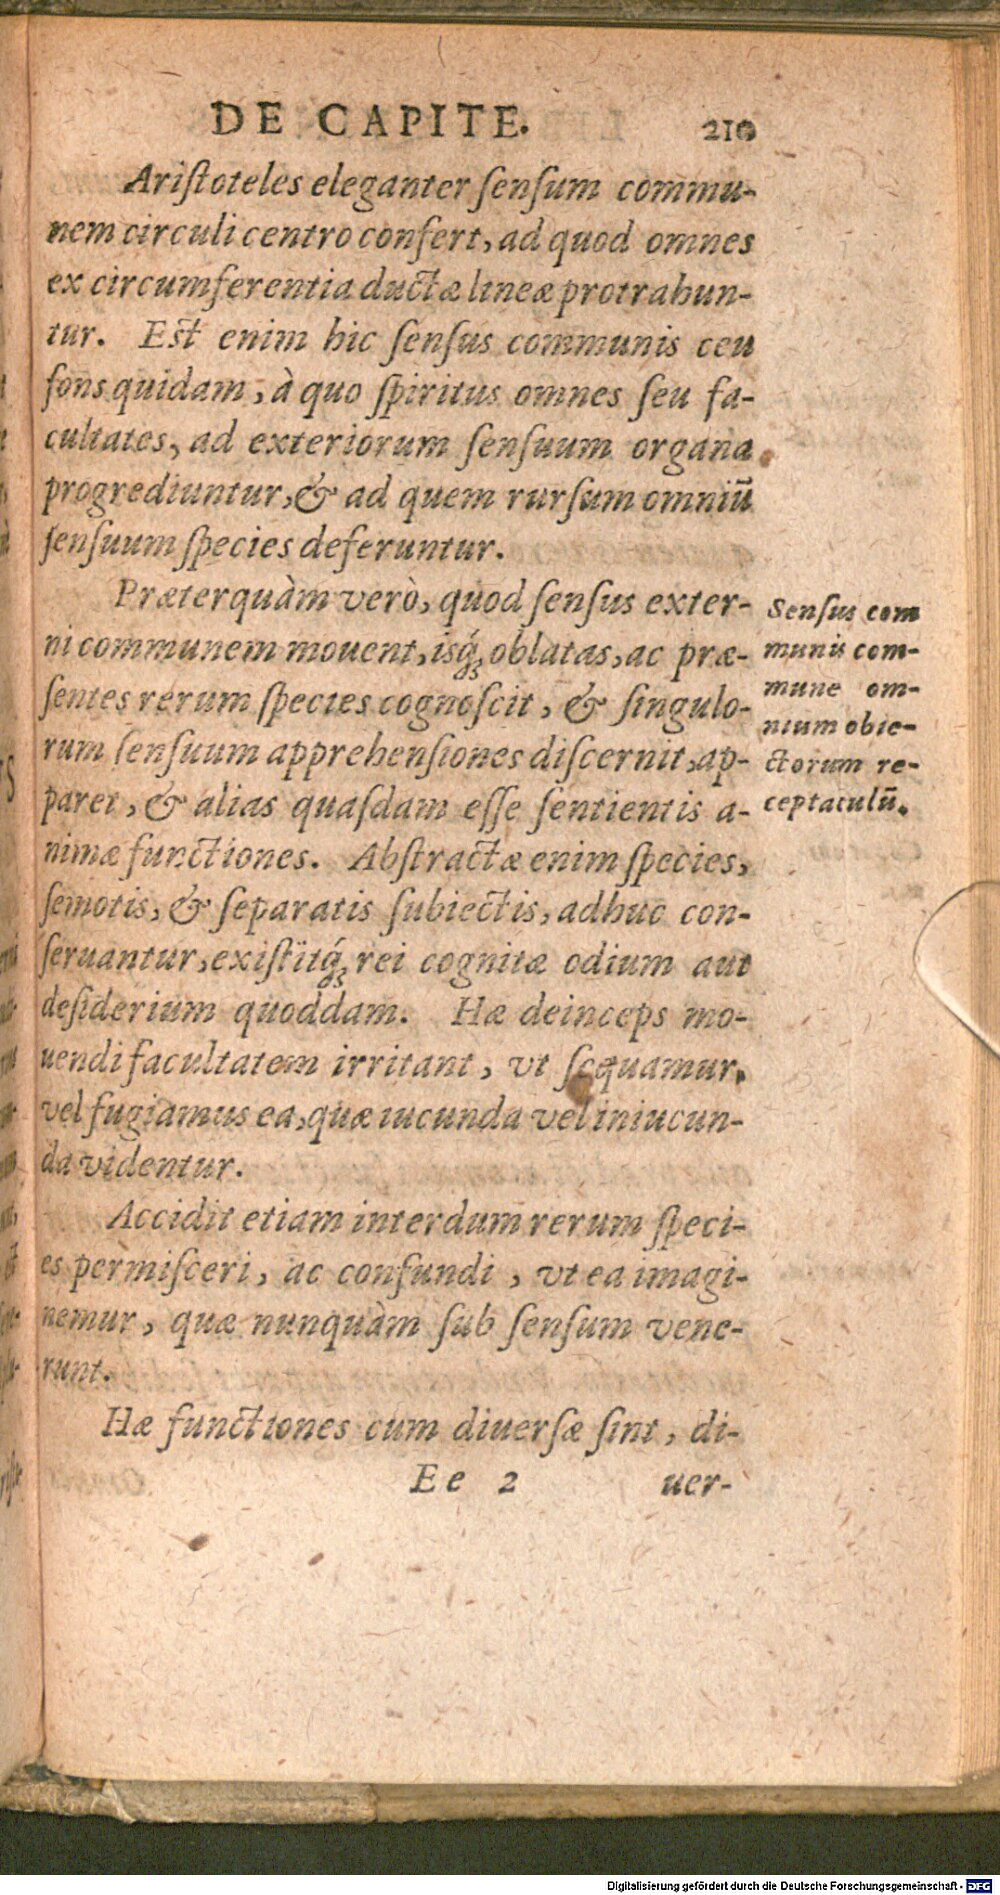 DE CAPITE. 210
Ariſtoteles eleganter ſenſum commu-
nem circuli centro confert, ad quod omnes
ex circumferentia ductæ lineæ protrahun-
tur. Eſt enim hic ſenſus communis ceu
fons quidam, à quo ſpiritus omnes ſeu fa-
cultates, ad exteriorum ſenſuum organa
progrediuntur, & ad quem rurſum omniū
ſenſuum ſpecies deferuntur.
Præterquàm verò, quod ſenſus exter-
ni communem mouent, isq́ꝫ oblatas, ac præ-
ſentes rerum ſpecies cognoſcit, & ſingulo-
rum ſenſuum apprehenſiones diſcernit, ap-
paret, & alias quaſdam eſſe ſentientis a-
nimæ functiones. Abſtractæ enim ſpecies,
ſemotis, & ſeparatis ſubiectis, adhuc con-
ſeruantur, exiſtitq́ꝫ rei cognitæ odium aut
deſiderium quoddam. Hæ deinceps mo-
uendi facultatem irritant, vt ſequamur,
vel fugiamus ea, quæ iucunda vel iniucun-
da videntur.
Accidit etiam interdum rerum ſpeci-
es permiſceri, ac confundi, vt ea imagi-
nemur, quæ nunquàm ſub ſenſum vene-
runt.
Hæ functiones cum diuerſæ ſint, di-
Ee 2 uer-
Senſus com
munis com-
mune om-
nium obie-
ctorum re-
ceptaculū.
Digitalisierung gefördert durch die Deutsche Forschungsgemeinschaft - DFG